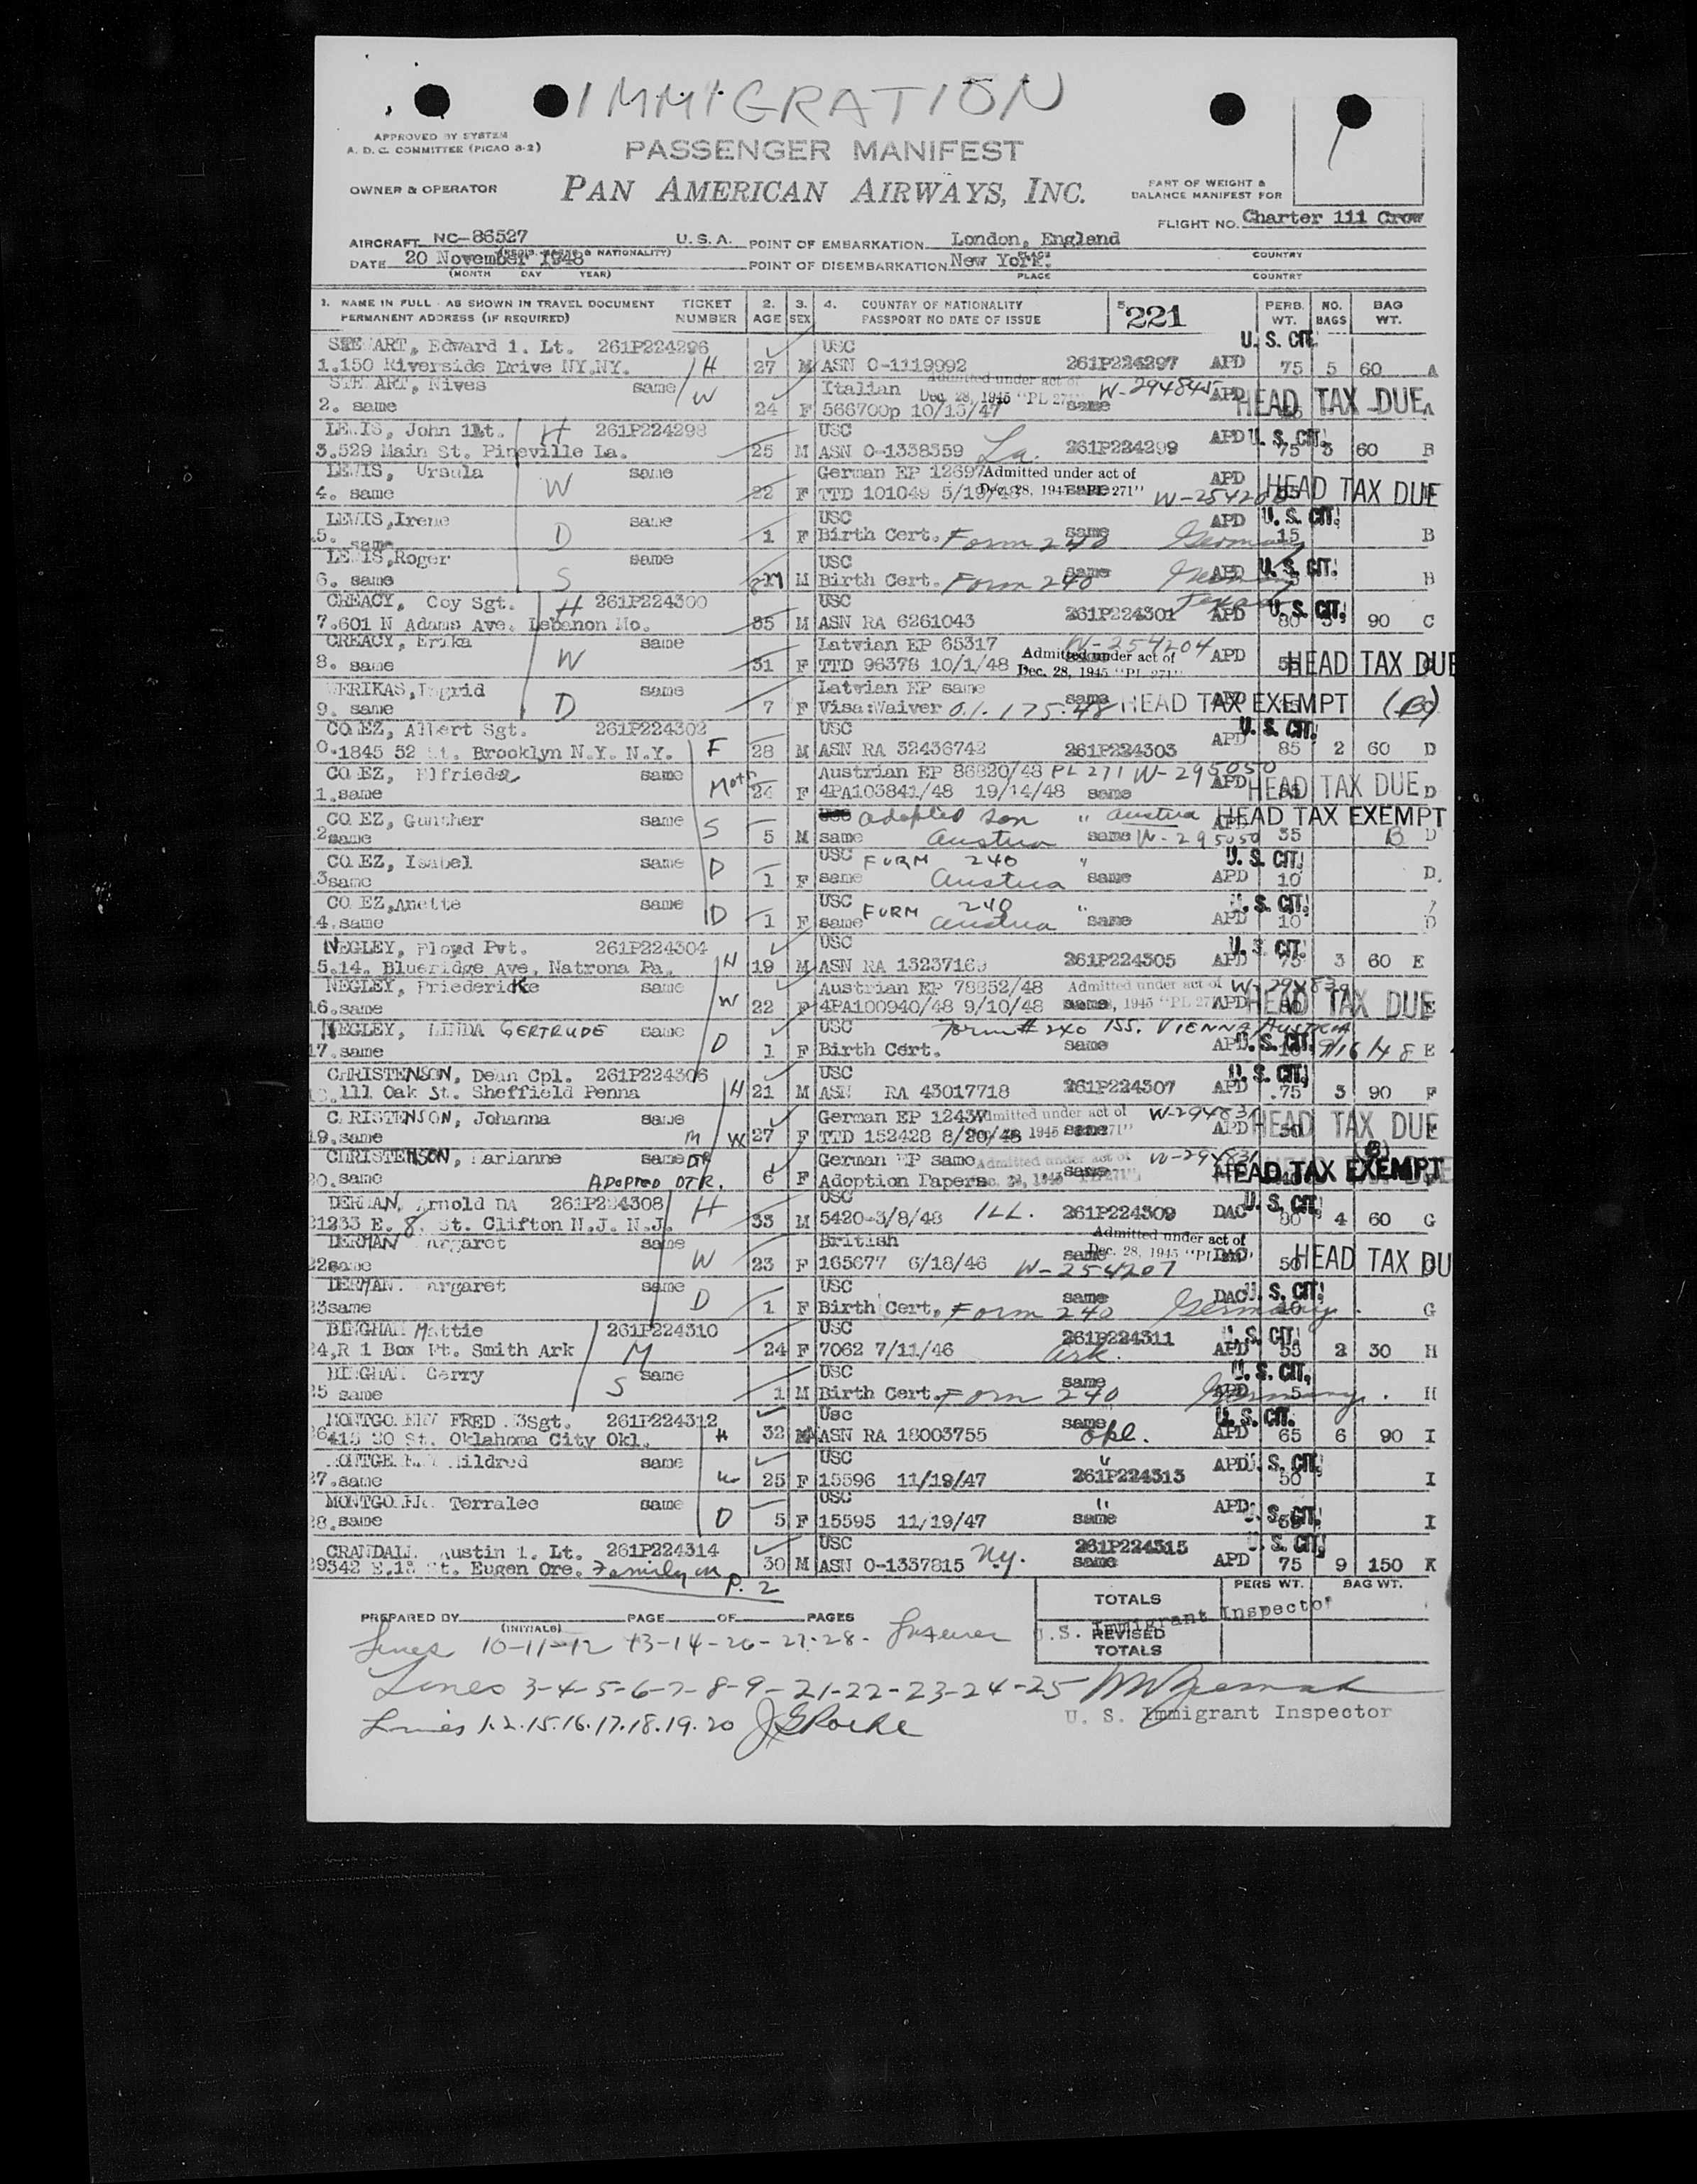 IMMIGRATION
APPROVED BY SYSTEM
A. D. C. COMMITTEE (PICAO 8-2)
PASSENGER MANIFEST
OWNER & OPERATOR PAN AMERICAN AIRWAYS, INC.
PART OF WEIGHT &
BALANCE MANIFEST FOR
FLIGHT NO. Charter 111 Crow
AIRCRAFT NC-86527 U.S.A. POINT OF EMBARKATION London, England
DATE 20 November 1948 POINT OF DISEMBARKATION New York.
(MONTH DAY YEAR) PLACE COUNTRY
1. NAME IN FULL - AS SHOWN IN TRAVEL DOCUMENT TICKET 2. 3. 4. COUNTRY OF NATIONALITY 5 221 PERS. NO. BAG
PERMANENT ADDRESS (IF REQUIRED) NUMBER AGE SEX PASSPORT NO DATE OF ISSUE WT. BAGS WT.
STEWART, Edward 1. Lt. 261P224296 USC U. S. CIT.
1.150 Riverside Drive NY.NY. H 27 M ASN O-1119992 261P224297 APD 75 5 60 A
STEWART, Nives same W Italian Admitted under act of W-294845 APD
2. same 24 F 566700p 10/15/47 Dec. 28, 1945 "PL 271" same HEAD TAX DUE A
LEWIS, John 1Lt. H 261P224298 USC APD U. S. CIT.
3.529 Main St. Pineville La. 25 M ASN O-1338559 La. 261P224299 75 3 60 B
LEWIS, Ursula same German EP 12697 Admitted under act of APD
4. same W 22 F TTD 101049 5/19/48 Dec. 28, 1945 "PL 271" same W-254208 HEAD TAX DUE
LEWIS,Irene same USC APD U. S. CIT.
5. same D 1 F Birth Cert. Form 240 same Germany 15 B
LEWIS,Roger same USC U. S. CIT.
6. same S M Birth Cert. Form 240 same APD B
CREACY, Coy Sgt. H 261P224300 USC Texas U. S. CIT.
7.601 N Adams Ave. Lebanon Mo. 35 M ASN RA 6261043 261P224301 APD 80 3 90 C
CREACY, Erika same Latvian EP 65317 W-254204
8. same W 31 F TTD 96378 10/1/48 Admitted under act of Dec. 28, 1945 "PL 271" APD 55 HEAD TAX DUE
VERIKAS,Ingrid same Latvian EP same
9. same D 7 F Visa:Waiver O.I. 175.48 same HEAD TAX EXEMPT (B)
Albert Sgt. 261P224302 USC U. S. CIT.
0.1845 52 St. Brooklyn N.Y. N.Y. F 28 M ASN RA 32436742 261P224303 APD 85 2 60 D
Elfrieda same Austrian EP 86820/48 PL 271 W-295050
1.same Moth 24 F 4PA103841/48 19/14/48 same APD HEAD TAX DUE D
Gunther same adopted son " Austria HEAD TAX EXEMPT
2same S 5 M same Austria same W-295050 35 B D
Isabel same D USC FORM 240 " U. S. CIT.
3same 1 F same Austria same APD 10 D.
Anette same USC FORM 240 " U. S. CIT.
4.same D 1 F same Austria same APD 10 D
NEGLEY, Floyd Pvt. 261P224304 USC U. S. CIT.
5.14. Blueridge Ave, Natrona Pa. H 19 M ASN RA 13237169 261P224305 APD 75 3 60 E
NEGLEY, Friedericke same Austrian EP 78852/48 Admitted under act of
16.same W 22 F 4PA100940/48 9/10/48 same APD HEAD TAX DUE
NEGLEY, LINDA GERTRUDE same USC Form # 240 ISS. VIENNA, AUSTRIA
17.same D 1 F Birth Cert. same APD U. S. CIT. 9/16/48 E
CHRISTENSON, Dean Cpl. 261P224306 USC U. S. CIT.
111 Oak St. Sheffield Penna H 21 M ASN RA 43017718 261P224307 APD 75 3 90 F
CHRISTENSON, Johanna same German EP 12437 Admitted under act of W-294831
19.same M W 27 F TTD 152428 8/20/48 same APD 50 HEAD TAX DUE
CHRISTENSON, Marianne same DTR German EP same Admitted under act of W-294831 (B)
20.same ADOPTED DTR. 6 F Adoption Papers same HEAD TAX EXEMPT
DERMAN, Arnold DA 261P224308 H USC U. S. CIT.
21233 E. 8. St. Clifton N.J. N.J. 33 M 5420-3/8/48 ILL. 261P224309 DAC 80 4 60 G
DERMAN Margaret same British Admitted under act of
22same W 23 F 165677 6/18/46 W-254207 same Dec. 28, 1945 DAC 50 HEAD TAX DU
DERMAN. Margaret same USC DAC U. S. CIT.
23same D 1 F Birth Cert. Form 240 same Germany. 10 G
BINGHAM Mattie 261P224310 USC U. S. CIT.
24,R 1 Box Ft. Smith Ark M 24 F 7062 7/11/46 Ark. 261P224311 APD 55 2 30 H
BINGHAM Gerry same USC same U. S. CIT.
25 same S 1 M Birth Cert. Form 240 Germany. APD 5 H
MONTGOMERY FRED .3Sgt. 261P224312 Usc same U. S. CIT.
26415 20 St. Oklahoma City Okl. H 32 M ASN RA 18003755 Okl. APD 65 6 90 I
Mildred same USC " APD U. S. CIT.
27.same W 25 F 15596 11/19/47 261P224313 50 I
Terralee same USC " APD
28.same D 5 F 15595 11/19/47 same U. S. CIT. I
CRANDALL Austin 1. Lt. 261P224314 USC 261P224315 U. S. CIT.
29342 E.13 St. Eugen Ore. Family on P. 2 30 M ASN O-1337815 Ny. same APD 75 9 150 K
TOTALS PERS WT. BAG WT.
PREPARED BY PAGE OF PAGES
(INITIALS)
U.S. Immigrant Inspector
REVISED TOTALS
Lines 10-11-12 13-14-26-27-28-
Lines 3-4-5-6-7-8-9-21-22-23-24-25
U. S. Immigrant Inspector
Lines 1.2.15.16.17.18.19.20